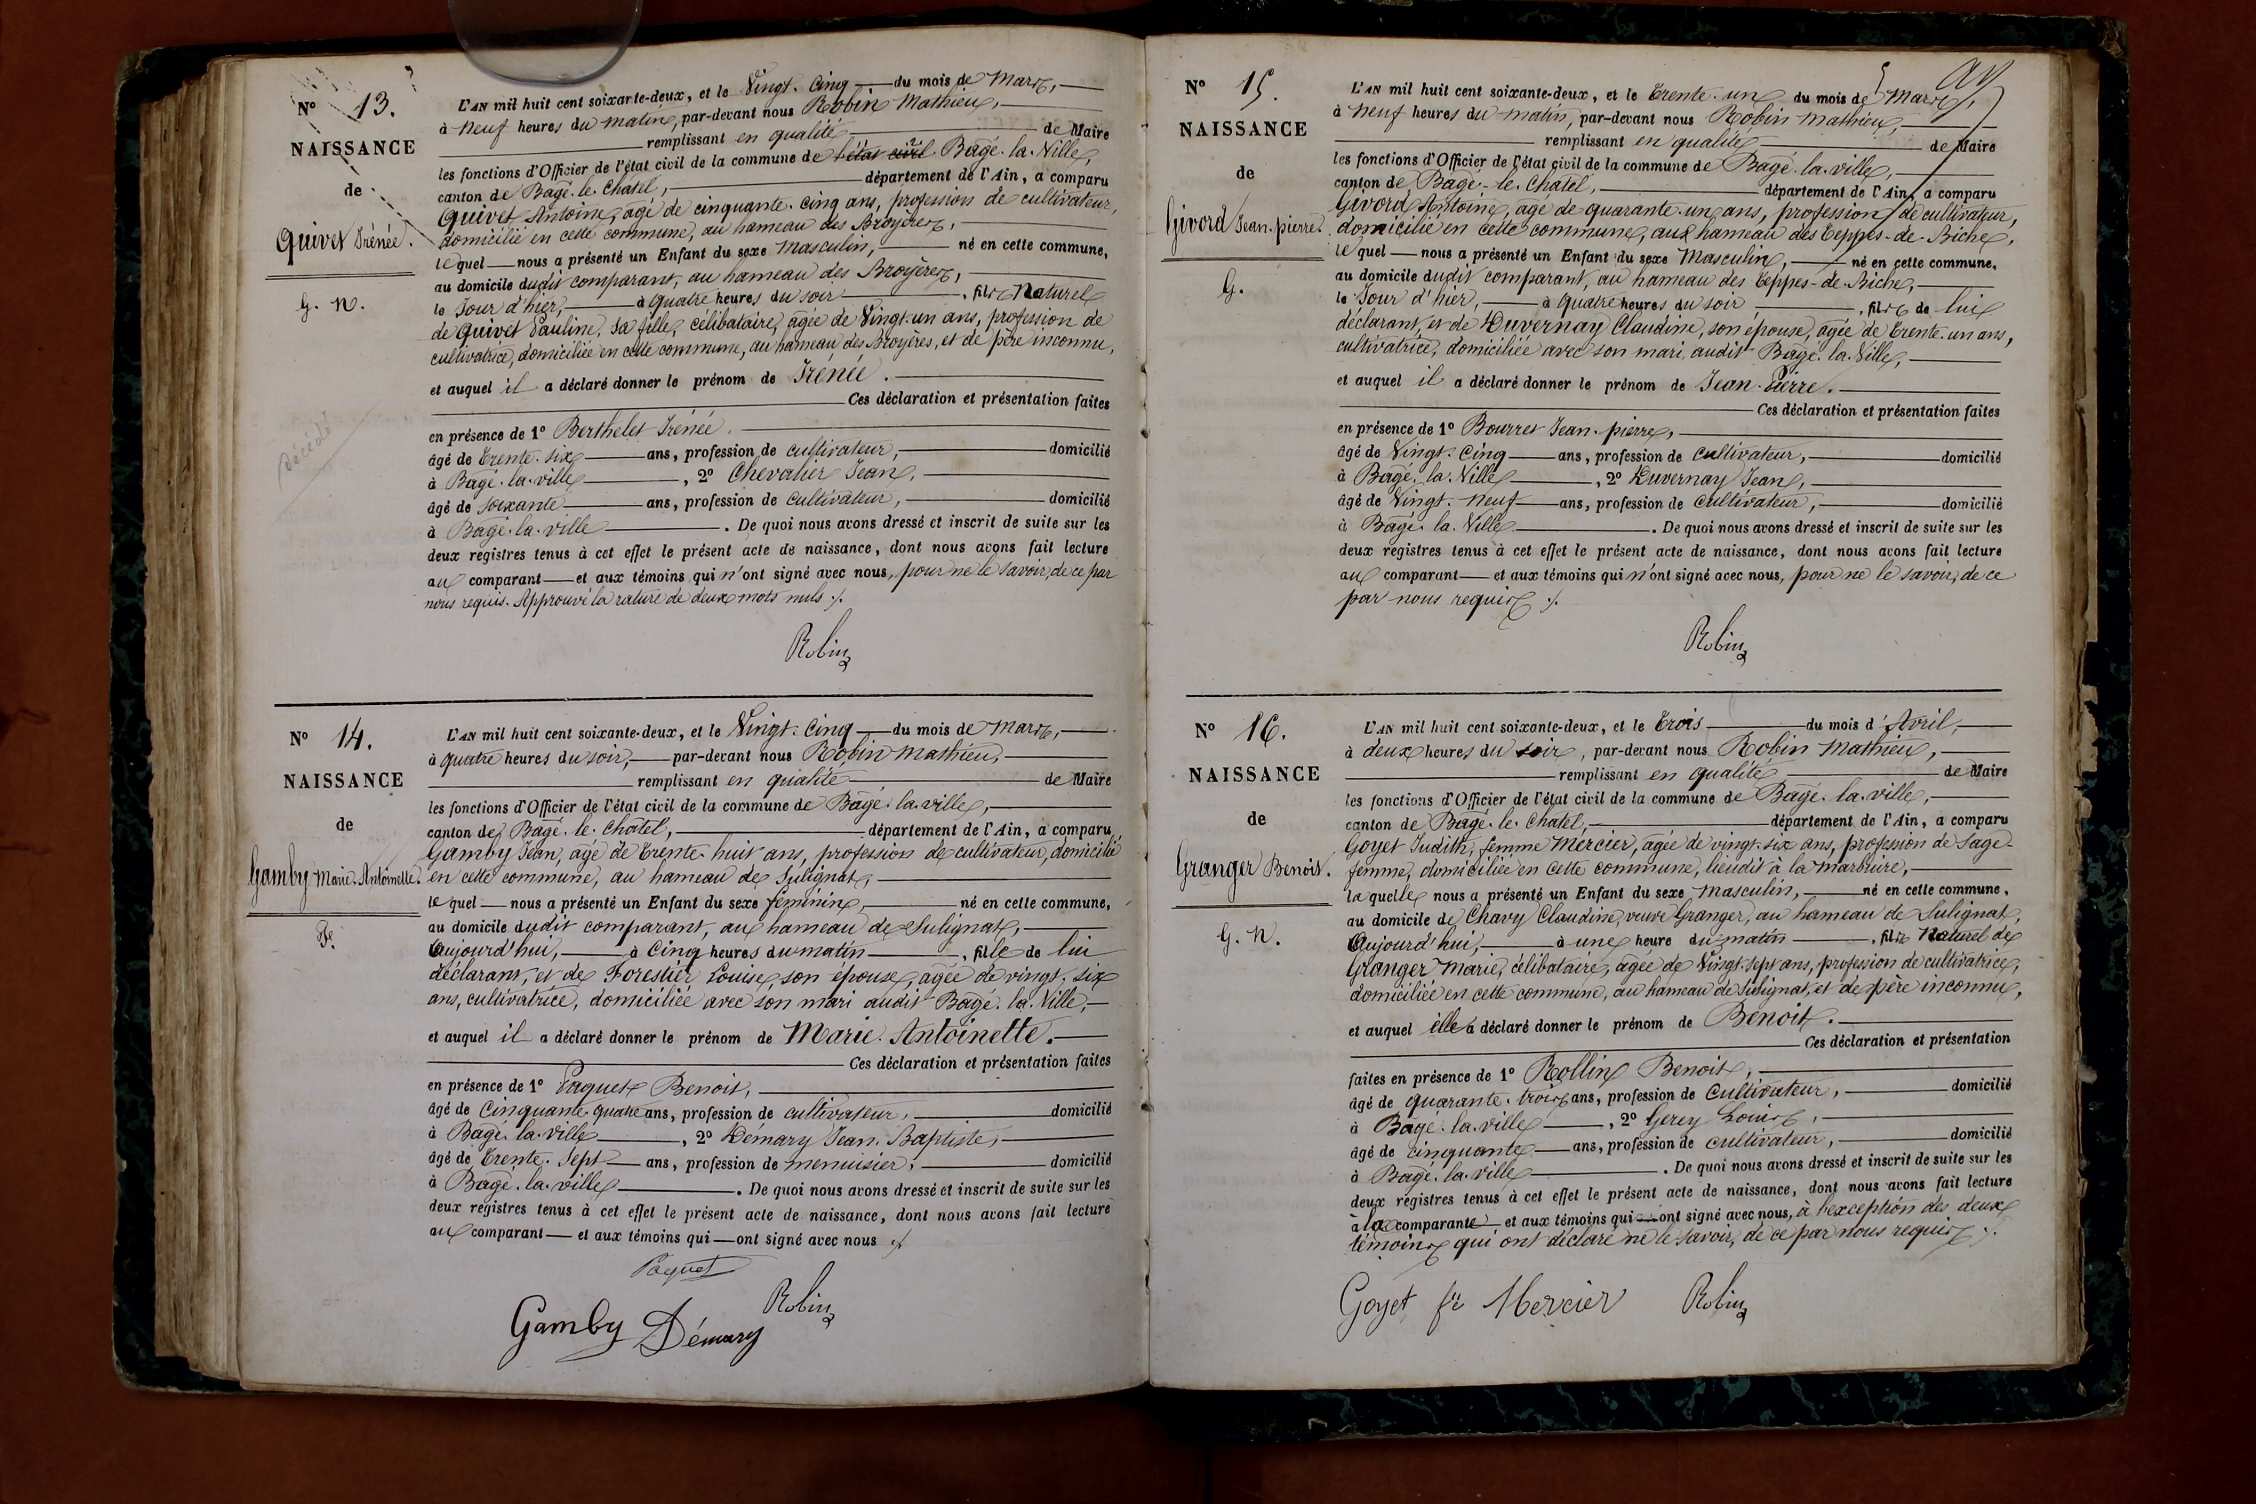 N° 13.
NAISSANCE
de
Quivet Irénée.
G. N.
décédé
L'AN mil huit cent soixante-deux, et le Vingt-Cinq du mois de Mars,
à neuf heures du matin, par-devant nous Robin Mathieu,
remplissant en qualité de Maire
les fonctions d'Officier de l'état civil de la commune de l'état civil Bagé-la-Ville,
canton de Bagé-le-Chatel, département de l'Ain, a comparu
Quivet Antoine, agé de cinquante-cinq ans, profession de cultivateur,
domicilié en cette commune, au hameau des Broyères,
lequel nous a présenté un Enfant du sexe Masculin, né en cette commune,
au domicile dudit comparant, au hameau des Broyères,
le Jour d'hier, à quatre heures du soir, fils Naturel
de Quivet Pauline, sa fille, célibataire, agée de Vingt-un ans, profession de
cultivatrice, domiciliée en cette commune, au hameau des Broyères, et de père inconnu,
et auquel il a déclaré donner le prénom de Irénée.
Ces déclaration et présentation faites
en présence de 1° Berthelet Irénée.
âgé de Trente-six ans, profession de cultivateur, domicilié
à Bagé-la-ville, 2° Chevalier Jean,
âgé de soixante ans, profession de cultivateur, domicilié
à Bagé-la-ville. De quoi nous avons dressé et inscrit de suite sur les
deux registres tenus à cet effet le présent acte de naissance, dont nous avons fait lecture
au comparant et aux témoins qui n'ont signé avec nous, pour ne le savoir, de ce par
nous requis. Approuvé la rature de deux mots nuls ./.
Robin
N° 14.
NAISSANCE
de
Gamby Marie-Antoinette.
F.
L'AN mil huit cent soixante-deux, et le Vingt-Cinq du mois de Mars,
à quatre heures du soir, par-devant nous Robin Mathieu,
remplissant en qualité de Maire
les fonctions d'Officier de l'état civil de la commune de Bagé-la-ville,
canton de Bagé-le-Chatel, département de l'Ain, a comparu
Gamby Jean, agé de Trente-huit ans, profession de cultivateur, domicilié
en cette commune, au hameau de Sulignat,
lequel nous a présenté un Enfant du sexe féminin, né en cette commune,
au domicile dudit comparant, au hameau de Sulignat,
Aujourd'hui, à Cinq heures du matin, fille de lui
déclarant, et de Forestier Louise, son épouse, agée de vingt-six
ans, cultivatrice, domiciliée avec son mari audit Bagé-la-Ville,
et auquel il a déclaré donner le prénom de Marie-Antoinette.
Ces déclaration et présentation faites
en présence de 1° Paquet Benoit,
âgé de Cinquante-quatre ans, profession de cultivateur, domicilié
à Bagé-la-ville, 2° Démary Jean-Baptiste,
âgé de Trente-Sept ans, profession de menuisier, domicilié
à Bagé-la-ville. De quoi nous avons dressé et inscrit de suite sur les
deux registres tenus à cet effet le présent acte de naissance, dont nous avons fait lecture
au comparant et aux témoins qui ont signé avec nous ./.
Paquet
Robin
Gamby Démary
N° 15.
NAISSANCE
de
Givord Jean-pierre.
G.
L'AN mil huit cent soixante-deux, et le Trente-un du mois de Mars,
à neuf heures du matin, par-devant nous Robin Mathieu,
remplissant en qualité de Maire
les fonctions d'Officier de l'état civil de la commune de Bagé-la-ville,
canton de Bagé-le-Chatel, département de l'Ain, a comparu
Givord Antoine, agé de quarante-un ans, profession de cultivateur,
domicilié en cette commune, aux hameau des Teppes-de-Biche,
lequel nous a présenté un Enfant du sexe Masculin, né en cette commune,
au domicile dudit comparant, au hameau des Teppes-de-Biche,
le Jour d'hier, à quatre heures du soir, fils de lui
déclarant, et de Duvernay Claudine, son épouse, agée de Trente-un ans,
cultivatrice, domiciliée avec son mari, audit Bagé-la-Ville,
et auquel il a déclaré donner le prénom de Jean-Pierre.
Ces déclaration et présentation faites
en présence de 1° Bourret Jean-pierre,
âgé de Vingt-Cinq ans, profession de Cultivateur, domicilié
à Bagé-la-Ville, 2° Duvernay Jean,
âgé de Vingt-Neuf ans, profession de Cultivateur, domicilié
à Bagé-la-Ville. De quoi nous avons dressé et inscrit de suite sur les
deux registres tenus à cet effet le présent acte de naissance, dont nous avons fait lecture
au comparant et aux témoins qui n'ont signé avec nous, pour ne le savoir, de ce
par nous requis ./.
Robin
N° 16.
NAISSANCE
de
Granger Benoit.
G. N.
L'AN mil huit cent soixante-deux, et le Trois du mois d'Avril,
à deux heures du soir, par-devant nous Robin Mathieu,
remplissant en qualité de Maire
les fonctions d'Officier de l'état civil de la commune de Bagé-la-ville,
canton de Bagé-le-Chatel, département de l'Ain, a comparu
Goyet Judith, femme Mercier, agée de vingt-six ans, profession de Sage-
femme, domiciliée en cette commune, lieudit à la marbrure,
laquelle nous a présenté un Enfant du sexe Masculin, né en cette commune,
au domicile de Chavy Claudine, veuve Granger, au hameau de Sulignat,
Aujourd'hui, à une heure du matin, fils Naturel de
Granger Marie, célibataire, agée de Vingt-sept ans, profession de cultivatrice,
domiciliée en cette commune, au hameau de Sulignat, et de père inconnu,
et auquel elle a déclaré donner le prénom de Benoit.
Ces déclaration et présentation
faites en présence de 1° Rollin Benoit,
âgé de quarante-trois ans, profession de Cultivateur, domicilié
à Bagé-la-ville, 2° Gerey Louis,
âgé de cinquante ans, profession de cultivateur, domicilié
à Bagé-la-ville. De quoi nous avons dressé et inscrit de suite sur les
deux registres tenus à cet effet le présent acte de naissance, dont nous avons fait lecture
à la comparante et aux témoins qui ont signé avec nous, à l'exception des deux
témoins qui ont déclaré ne le savoir, de ce par nous requis ./.
Goyet fe Mercier Robin